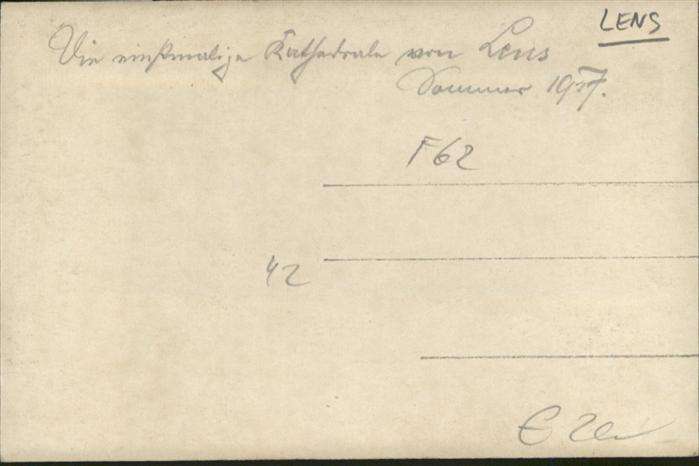 LENS
Die einstmalige Kathedrale von Lens
Sommer 1917.
F62
42